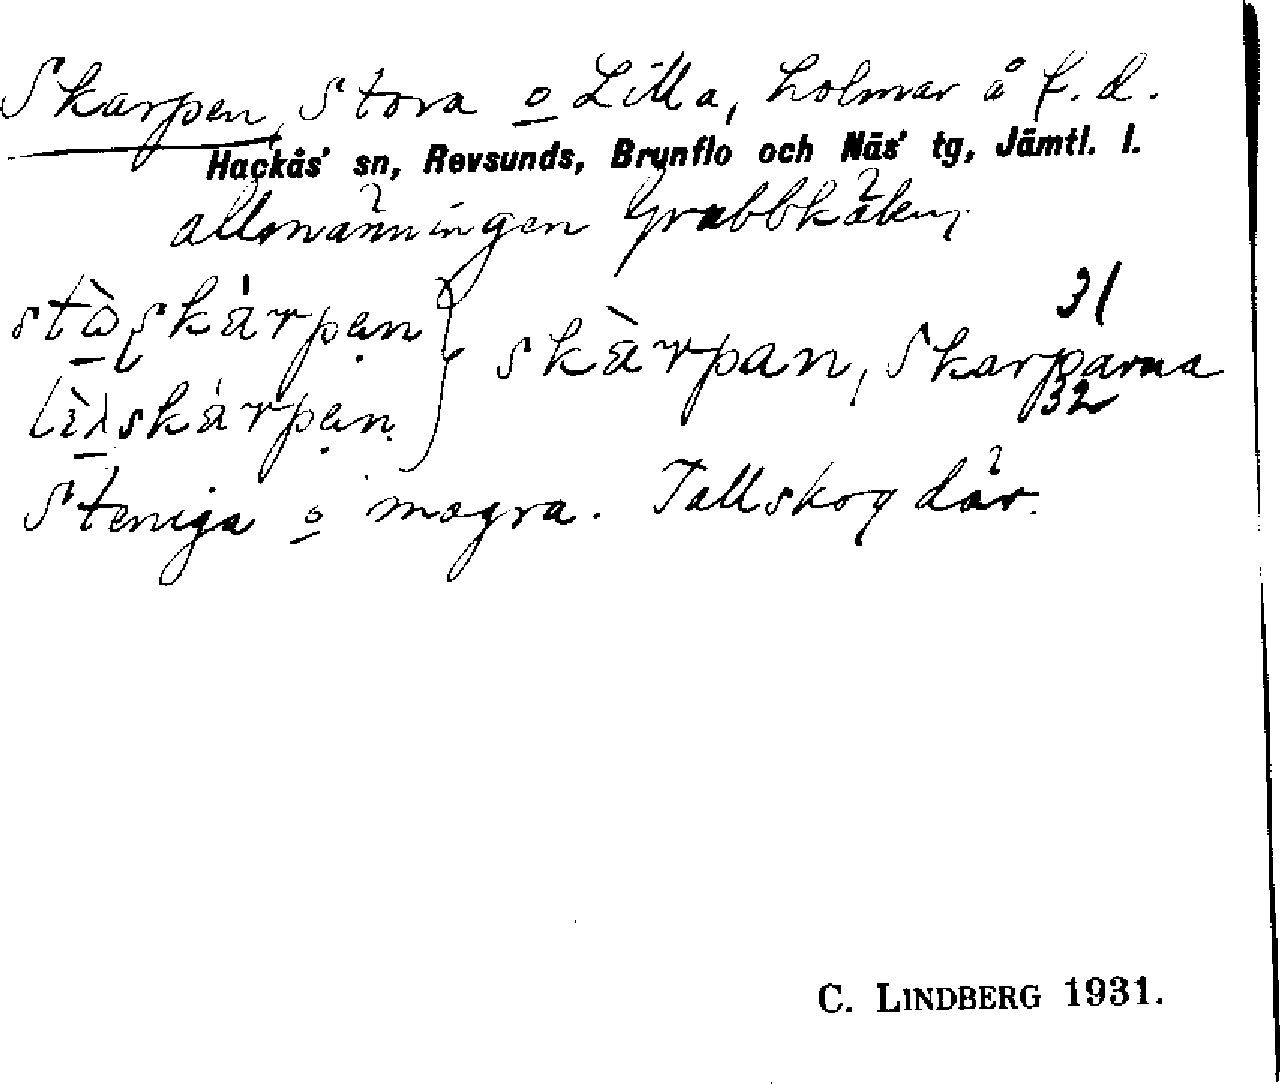 Skarpen, Stora o Lilla, holmar å f.d.
Hackås' sn, Revsunds, Brunflo och Näs' tg, Jämtl. l.
allmänningen Grubbkälen,
31
stò̱skárpạn } skàrpan, Skarparna
32
skárpạn
Steniga o magra. Tallskog där.
C. LINDBERG 1931.